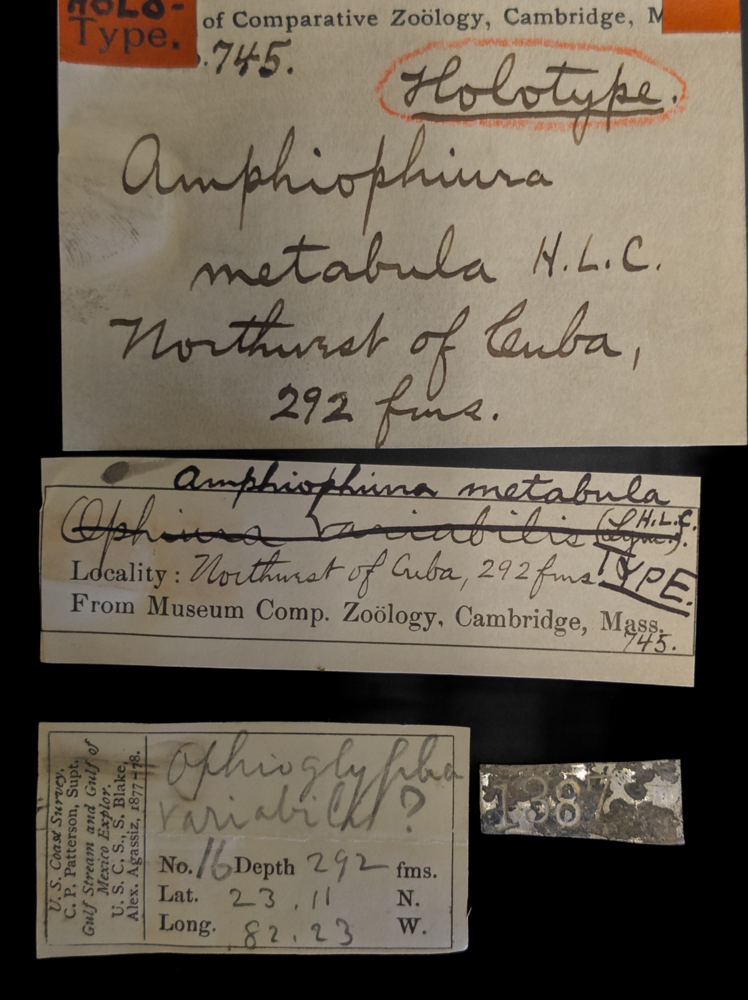 HOLO-
Type.
of Comparative Zoölogy, Cambridge, M
.745.
Holotype.
Amphiophiura
metabula H.L.C.
Northwest of Cuba,
292 fms.
Amphiophiura metabula
H.L.C.
Ophiura variabilis (Lym.).
Locality: Northwest of Cuba, 292 fms.
TYPE.
From Museum Comp. Zoölogy, Cambridge, Mass.
745.
U. S. Coast Survey.
C. P. Patterson, Supt.
Gulf Stream and Gulf of
Mexico Explor.
U. S. C. S., S. Blake,
Alex. Agassiz, 1877-78.
Ophioglypha
variabilis ?
No. 16 Depth 292 fms.
Lat. 23.11 N.
Long. 82.23 W.
1387